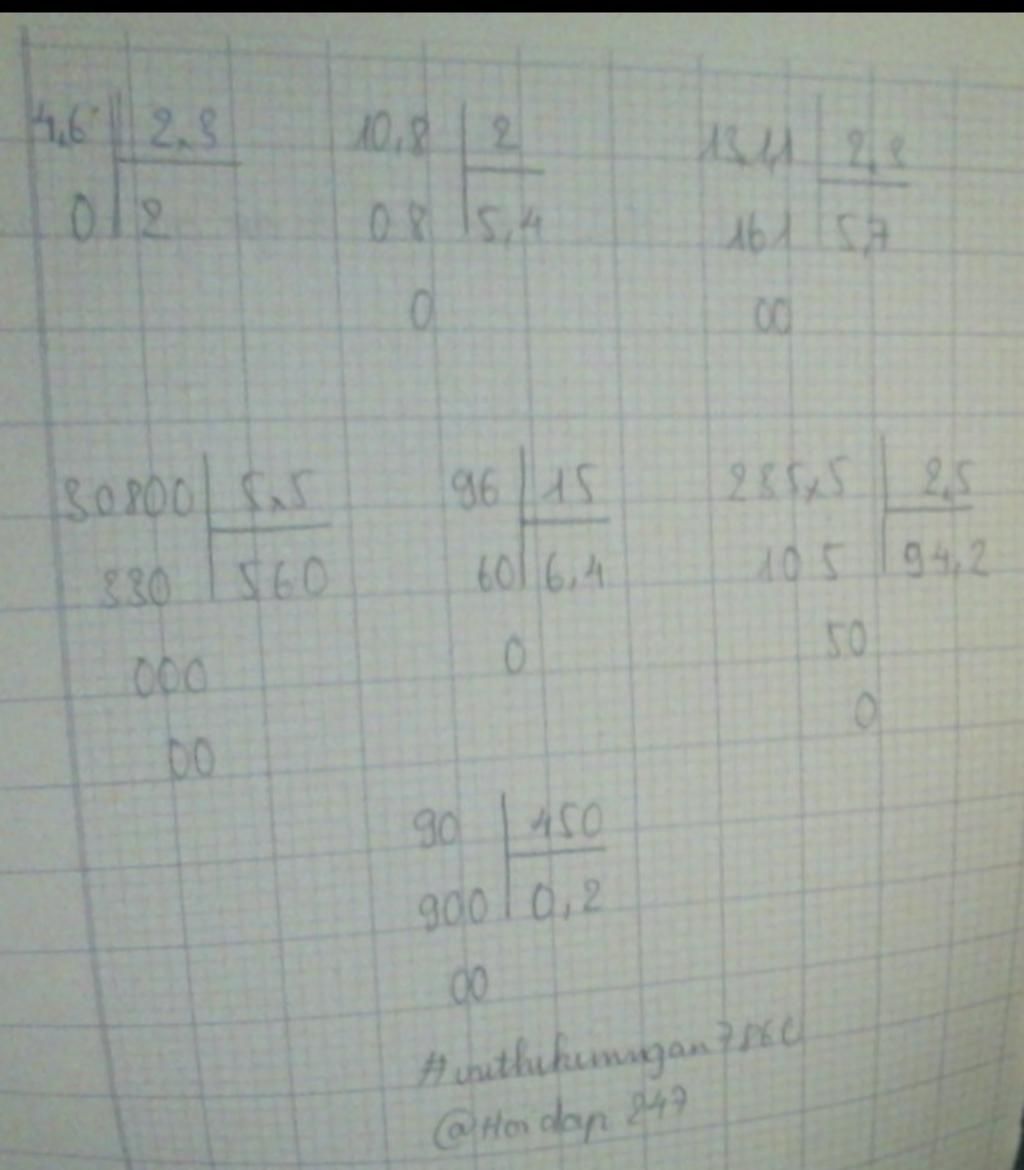 4,6 2,3 10,8 2 13,11 2,3
0 2 08 5,4 161 5,7
0 00
30800 5,5 96 15 235,5 2,5
330 560 60 6,4 10 5 94,2
000 0 50
00 0
90 450
900 0,2
00
@Hoi dap 247